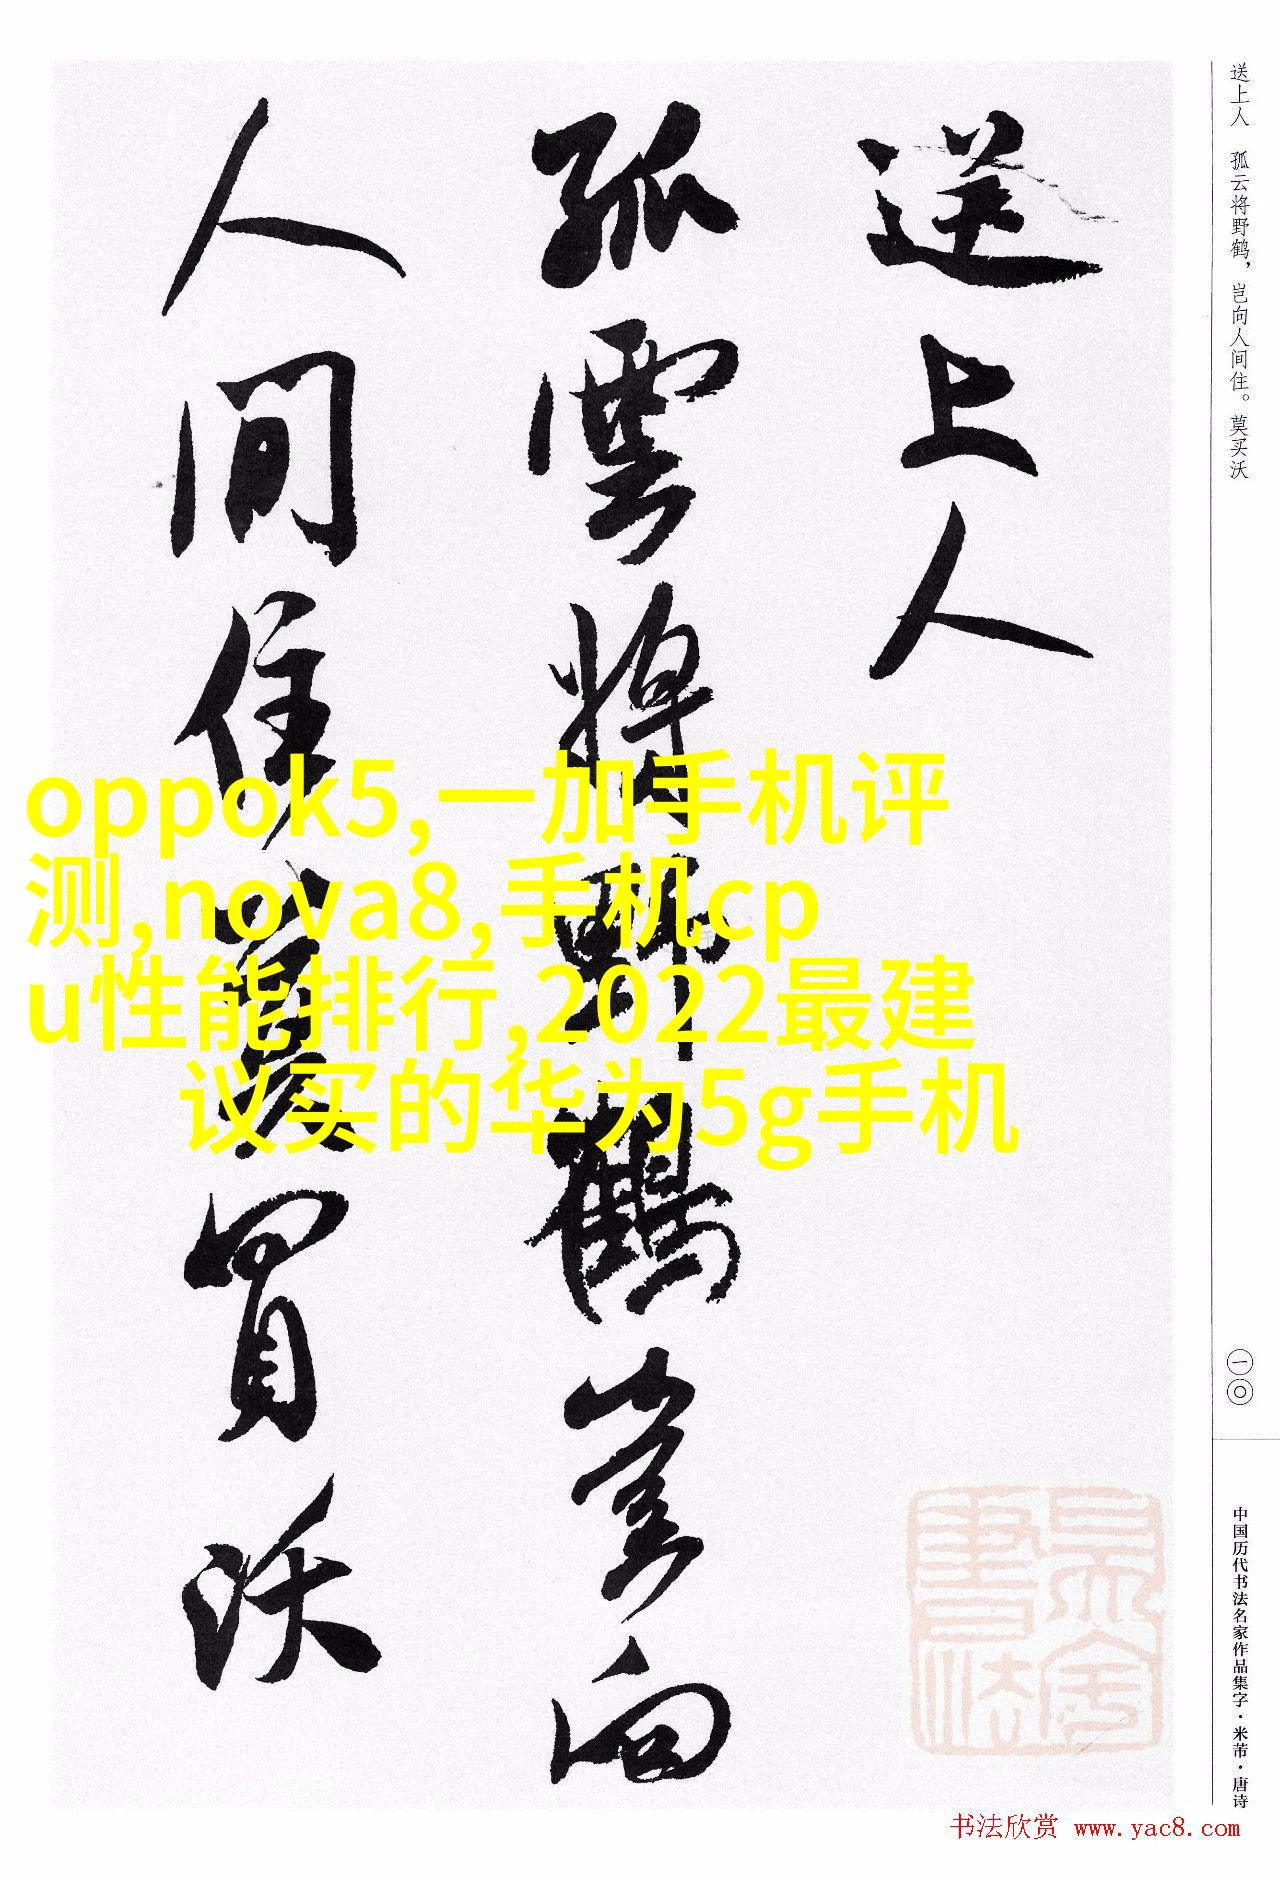 送上人
孤雲將野鶴豈向
人間住莫買沃
送上人 孤云将野鹤，岂向人间住。莫买沃
oppok5,一加手机评
测,nova8,手机cp
u性能排行,2022最建
议买的华为5g手机
一〇
中国历代书法名家作品集字·米芾·唐诗
书法欣赏 www.yac8.com